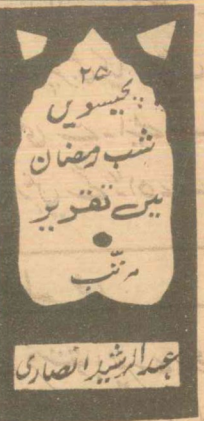 ۲۵
پچیسویں
شب رمضان
میں تقریر
مرتب
عبدالرشید انصاری